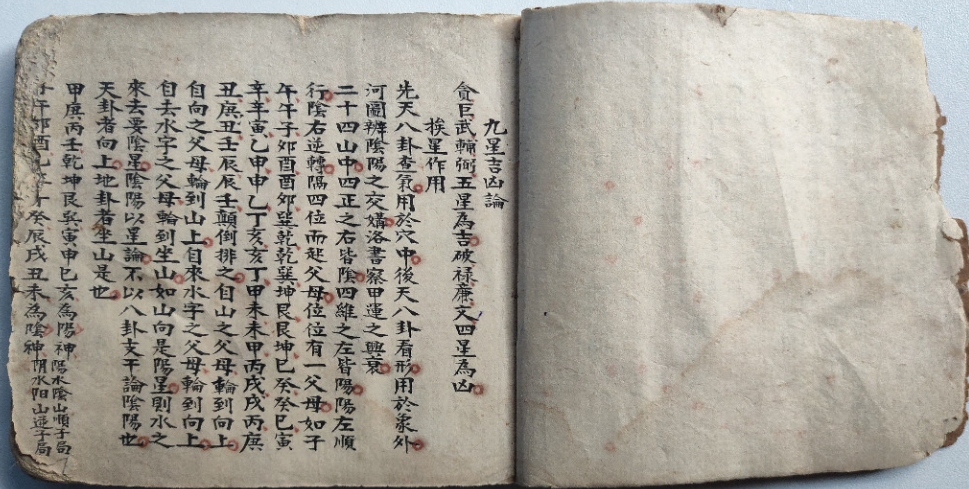 九星吉凶論
貪巨武輔弼五星為吉破祿廉文四星為凶
挨星作用
先天八卦查氣用於穴中後天八卦看形用於象外
河圖辨陰陽之交媾洛書察甲運之興衰
二十四山中四正之右皆陰四維之左皆陽陽左順
行陰右逆轉隅四位而起父母位位有一父母如子
午午子夘酉酉夘巽乾乾巽坤艮艮坤巳癸癸巳寅
辛辛寅乙申申乙丁亥亥丁甲未未甲丙戌戌丙庚
丑庚丑壬辰辰壬顛倒排之自山之父母輪到向上
自向之父母輪到山上自來水字之父母輪到向上
自去水字之父母輪到坐山如山向是陽星則水之
來去要陰星陰陽以星論不以八卦支干論陰陽也
天卦者向上地卦者坐山是也
甲庚丙壬乾坤艮巽寅申巳亥為陽神 陽水陰山順子局
午夘酉乙癸辰戌丑未為陰神 阴水阳山逆子局